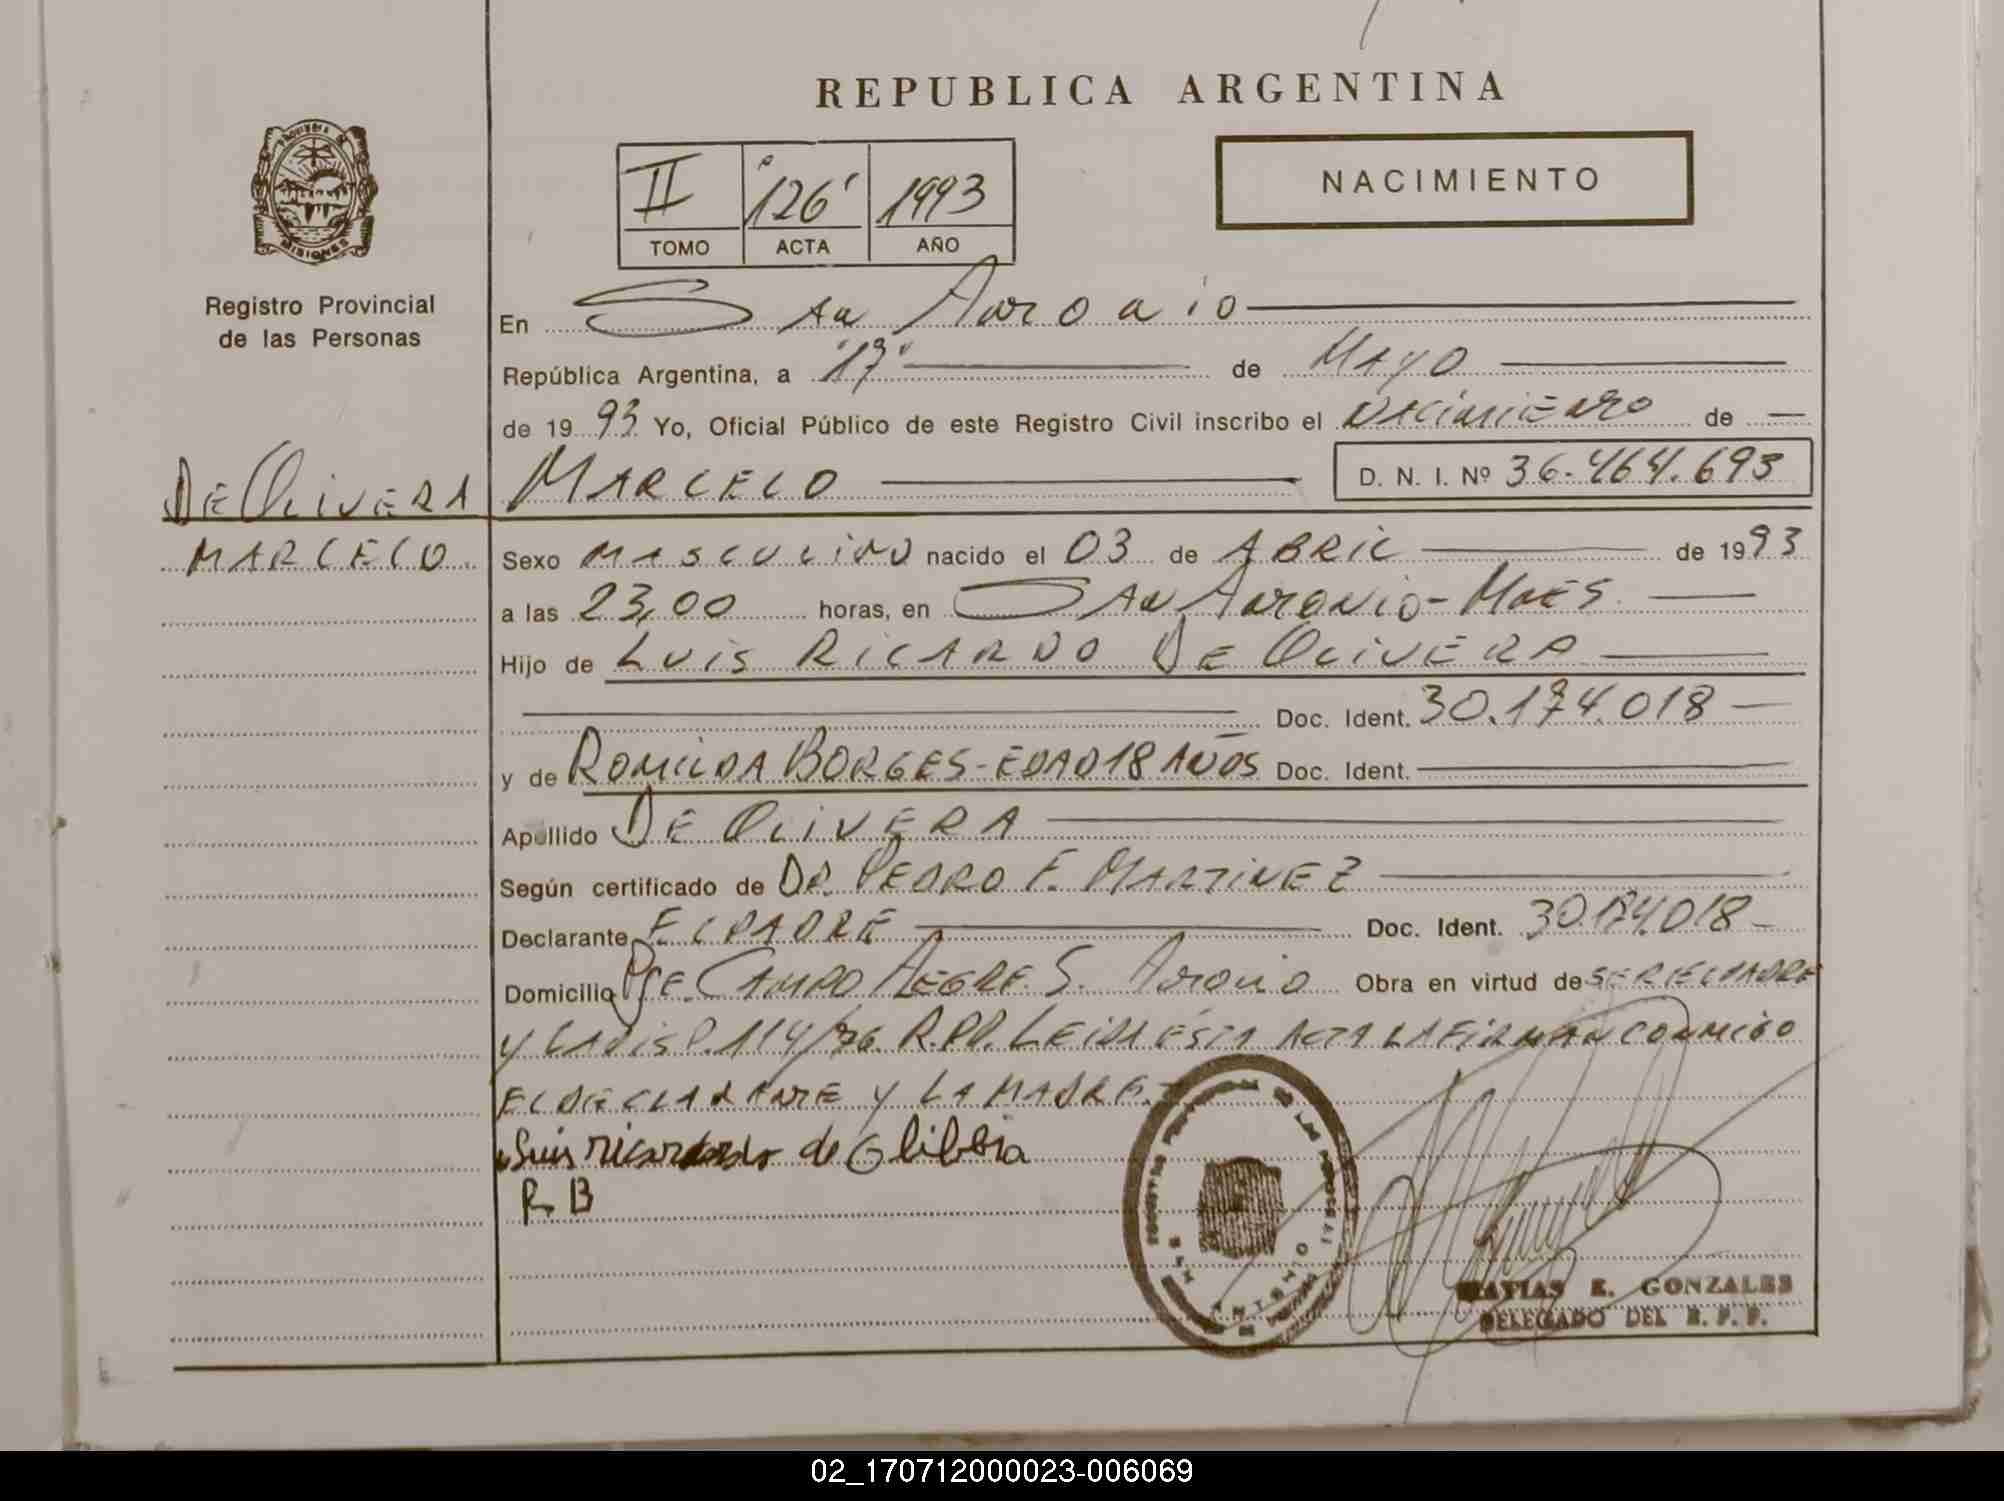 REPUBLICA ARGENTINA
MISIONES
Registro Provincial
de las Personas
II "126" 1993
TOMO ACTA AÑO
NACIMIENTO
En San Antonio
República Argentina, a "17" de Mayo
de 1993 Yo, Oficial Público de este Registro Civil inscribo el nacimiento de
MARCELO D. N. I. Nº 36.464.693
DE OLIVERA
MARCELO.
Sexo MASCULINO nacido el 03 de ABRIL de 1993
a las 23,00 horas, en San Antonio - Mnes.
Hijo de LUIS RICARDO DE OLIVERA
Doc. Ident. 30.174.018
y de ROMILDA BORGES - EDAD 18 AÑOS Doc. Ident.
Apellido DE OLIVERA
Según certificado de DR. PEDRO F. MARTINEZ
Declarante EL PADRE Doc. Ident. 30.174.018
Domicilio Pje. CAMPO ALEGRE. S. Antonio Obra en virtud de SER EL PADRE
y LA DISP. 114/76. R.P.P. LEIDA ESTA ACTA LA FIRMAN CONMIGO
EL DECLARANTE y LA MADRE.
Luis ricardo de Olibera
R B
SAN ANTONIO
MATIAS E. GONZALES
DELEGADO DEL R. P. P.
02_170712000023-006069